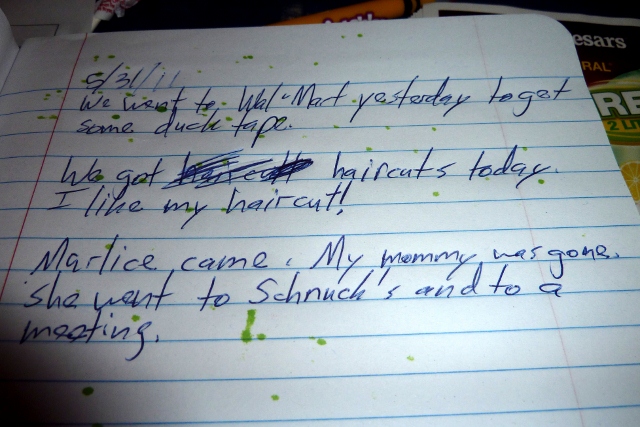 8/31/11
We went to Wal-Mart yesterday to get
some duck tape.
We got haircuts today.
I like my haircut!
Marlice came. My mommy was gone.
She went to Schnuck's and to a
meeting.
esars
RAL
RE
2 L